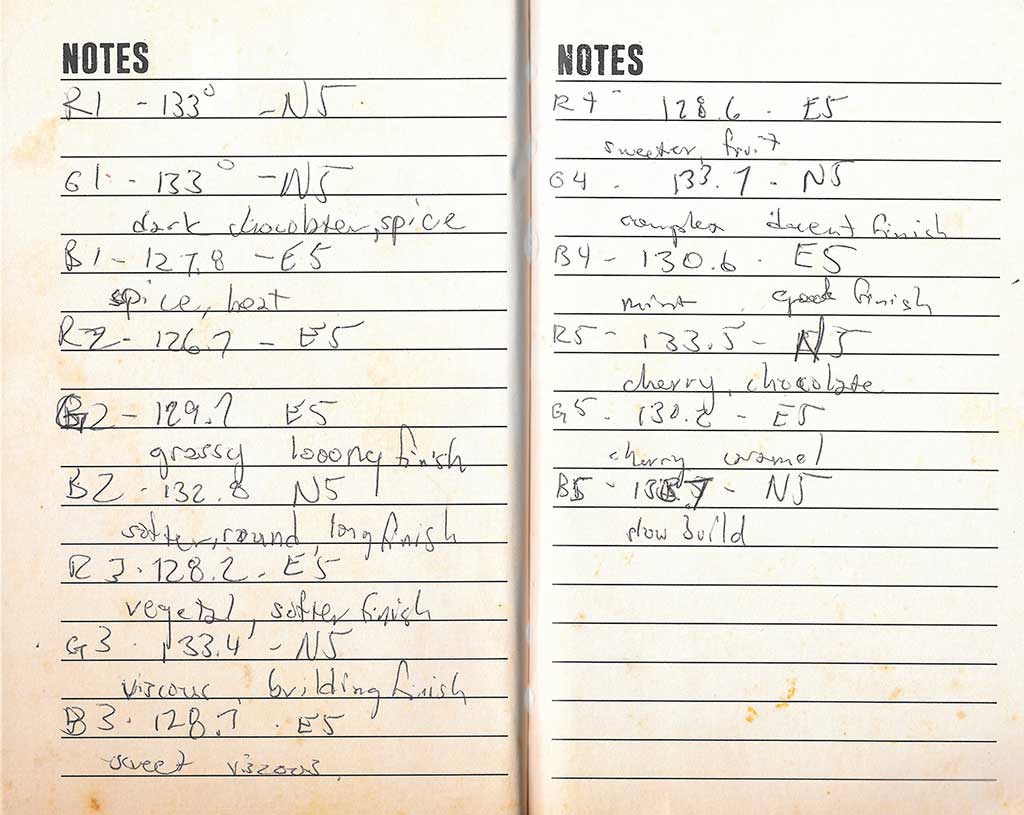 NOTES
R1 - 133° - N5
G1 - 133° - N5
dark chocolatey, spice
B1 - 127.8 - E5
spice, heat
R2 - 126.7 - E5
G2 - 129.7 E5
grassy looong finish
B2 - 132.8 N5
softer, round, long finish
R3 - 128.2 - E5
vegetal, softer finish
G3 - 133.4 - N5
viscous, building finish
B3 - 128.7 - E5
sweet viscous
NOTES
R4 - 128.6 - E5
sweeter, fruit
G4 - 133.7 - N5
complex decent finish
B4 - 130.6 - E5
mint, good finish
R5 - 133.5 - N5
cherry, chocolate
G5 - 130.2 - E5
cherry caramel
B5 - - N5
slow build